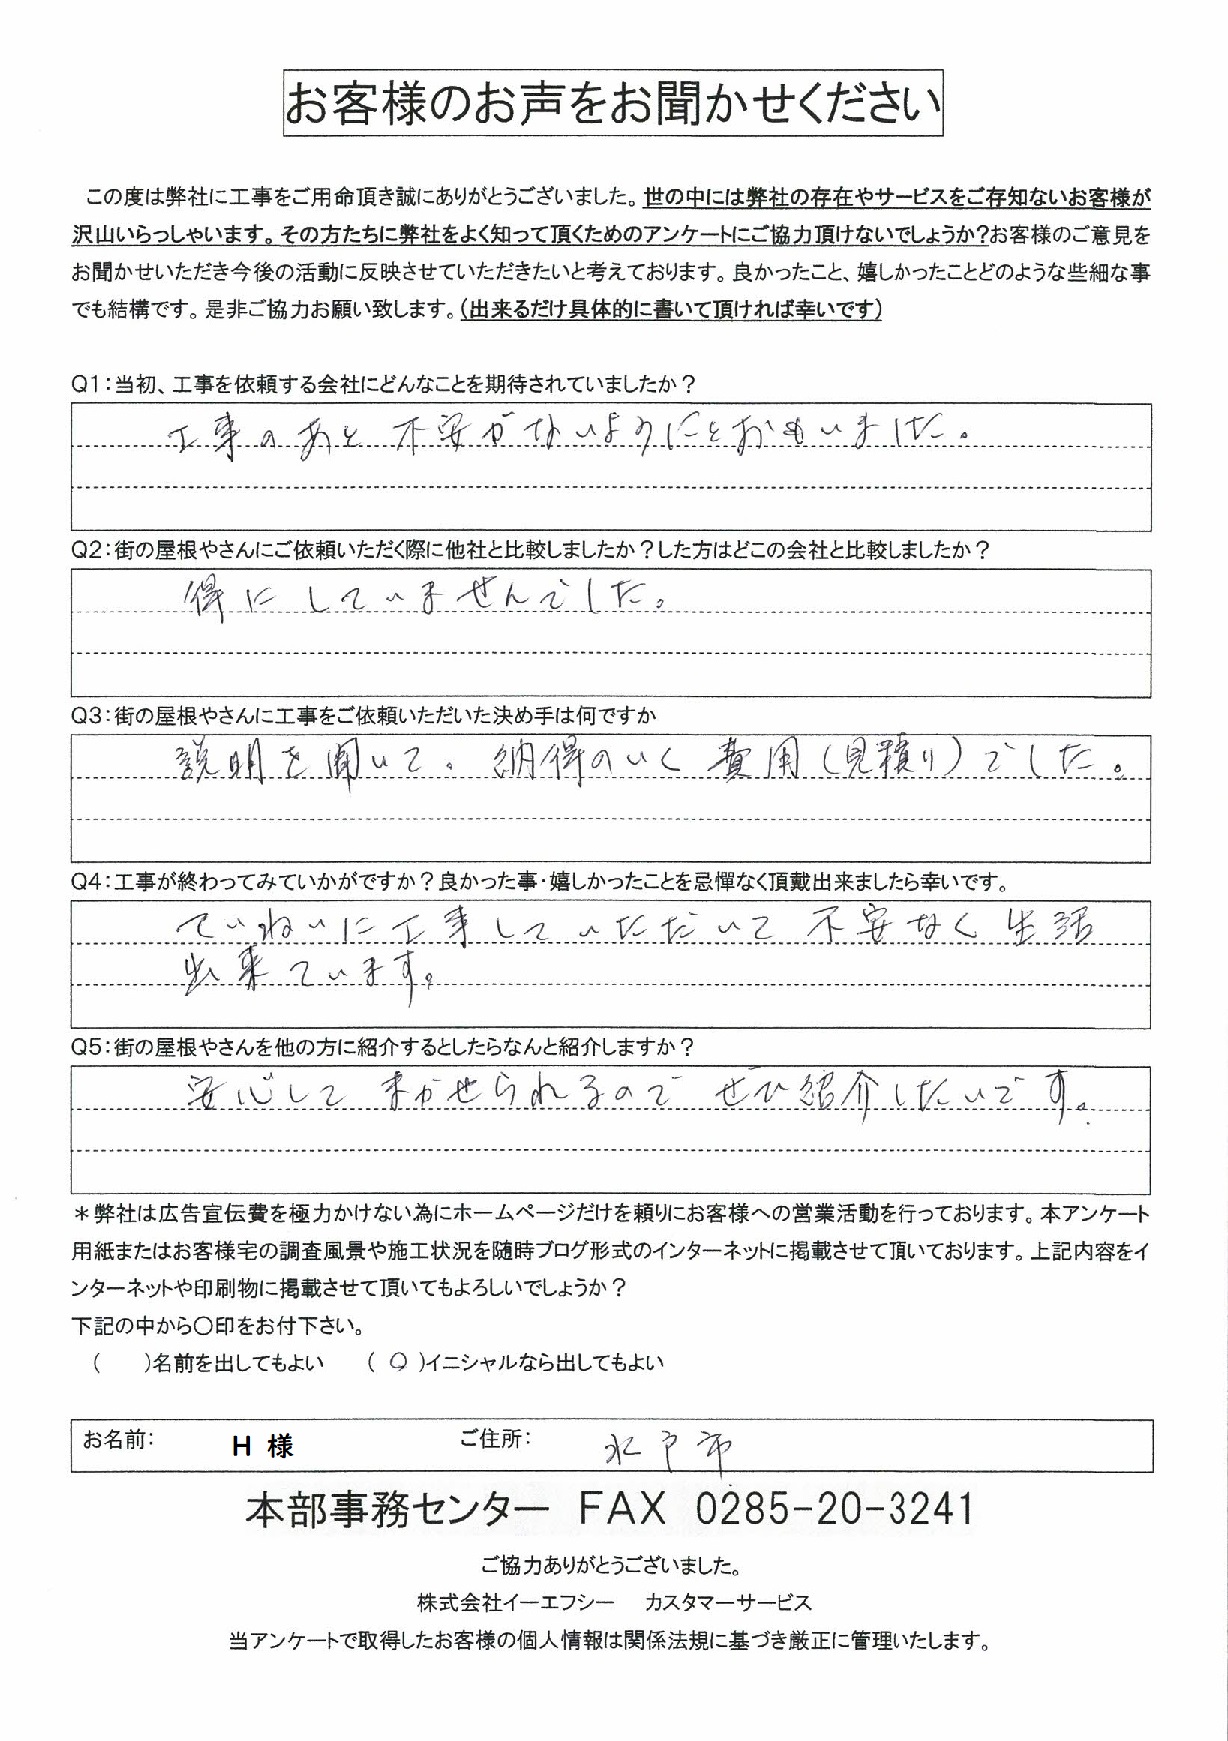 お客様のお声をお聞かせください
この度は弊社に工事をご用命頂き誠にありがとうございました。世の中には弊社の存在やサービスをご存知ないお客様が
沢山いらっしゃいます。その方たちに弊社をよく知って頂くためのアンケートにご協力頂けないでしょうか?お客様のご意見を
お聞かせいただき今後の活動に反映させていただきたいと考えております。良かったこと、嬉しかったことどのような些細な事
でも結構です。是非ご協力お願い致します。(出来るだけ具体的に書いて頂ければ幸いです)
Q1:当初、工事を依頼する会社にどんなことを期待されていましたか?
工事のあと不安がないようにとおもいました。
Q2:街の屋根やさんにご依頼いただく際に他社と比較しましたか?した方はどこの会社と比較しましたか?
得にしていませんでした。
Q3:街の屋根やさんに工事をご依頼いただいた決め手は何ですか
説明を聞いて。納得のいく費用(見積り)でした。
Q4:工事が終わってみていかがですか?良かった事・嬉しかったことを忌憚なく頂戴出来ましたら幸いです。
ていねいに工事していただいて不安なく生活
出来ています。
Q5:街の屋根やさんを他の方に紹介するとしたらなんと紹介しますか?
安心してまかせられるのでぜひ紹介したいです。
*弊社は広告宣伝費を極力かけない為にホームページだけを頼りにお客様への営業活動を行っております。本アンケート
用紙またはお客様宅の調査風景や施工状況を随時ブログ形式のインターネットに掲載させて頂いております。上記内容をイ
ンターネットや印刷物に掲載させて頂いてもよろしいでしょうか?
下記の中から〇印をお付下さい。
( )名前を出してもよい (〇)イニシャルなら出してもよい
お名前: H 様 ご住所: 水戸市
本部事務センター FAX 0285-20-3241
ご協力ありがとうございました。
株式会社イーエフシー カスタマーサービス
当アンケートで取得したお客様の個人情報は関係法規に基づき厳正に管理いたします。